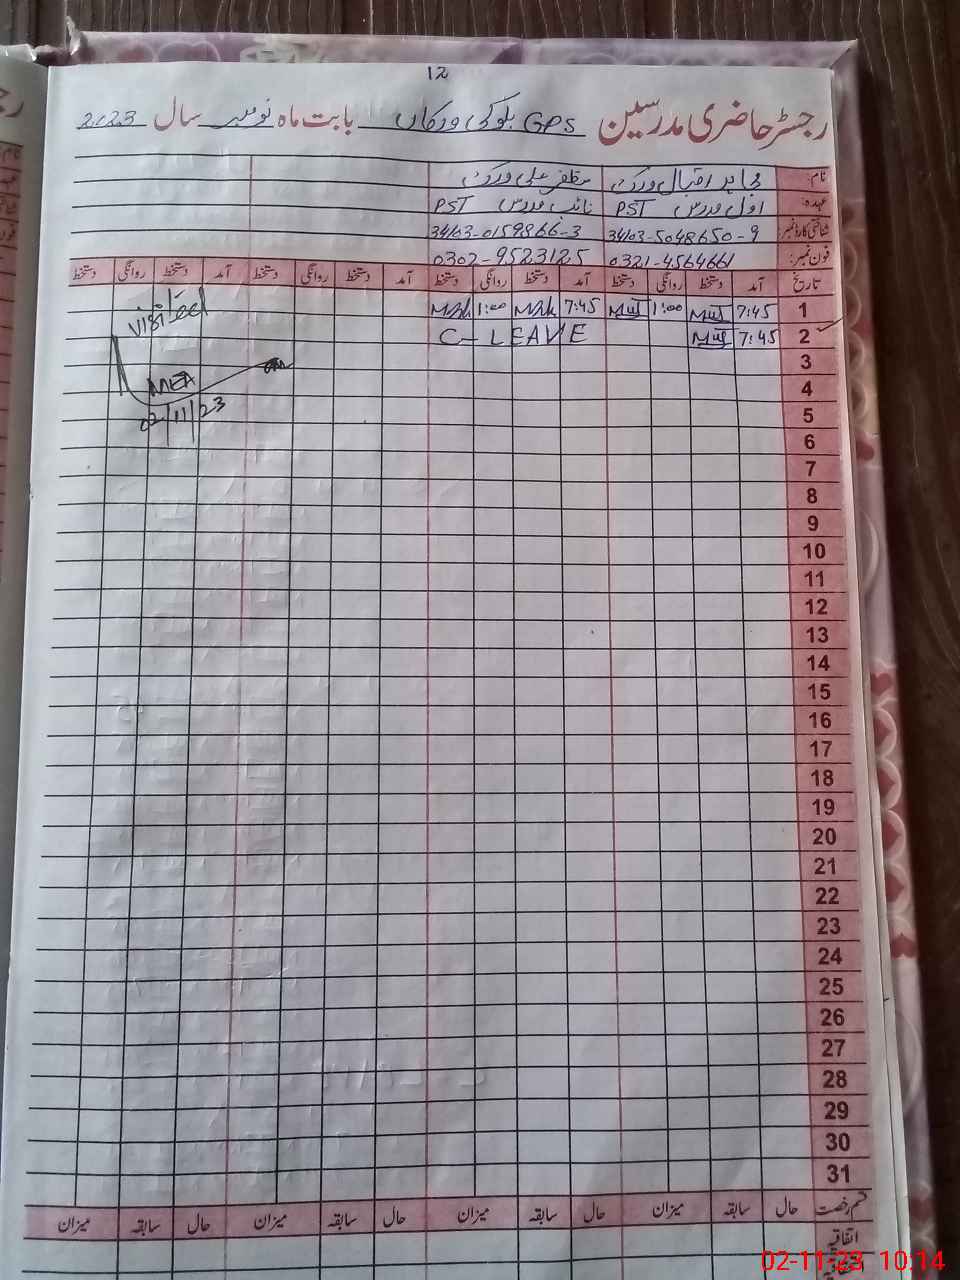 12
رجسٹر حاضری مدرسین GPS بلوکی ورکاں بابت ماہ نومبر سال 2023
نام: مجاہد اقبال ورک مظفر علی ورک
عہدہ: اول مدرس PST نائب مدرس PST
شناختی کارڈ نمبر: 34103-5048650-9 34103-0159866-3
فون نمبر: 0321-4564661 0302-9523125
تاریخ آمد دستخط روانگی دستخط آمد دستخط روانگی دستخط آمد دستخط روانگی دستخط آمد دستخط روانگی دستخط
1 7:45 1:00 7:45 1:00
2 7:45 C-LEAVE
visited
MEA
02/11/23
3
4
5
6
7
8
9
10
11
12
13
14
15
16
17
18
19
20
21
22
23
24
25
26
27
28
29
30
31
قسم رخصت حال سابقہ میزان حال سابقہ میزان حال سابقہ میزان حال سابقہ میزان
اتفاقیہ
02-11-23 10:14